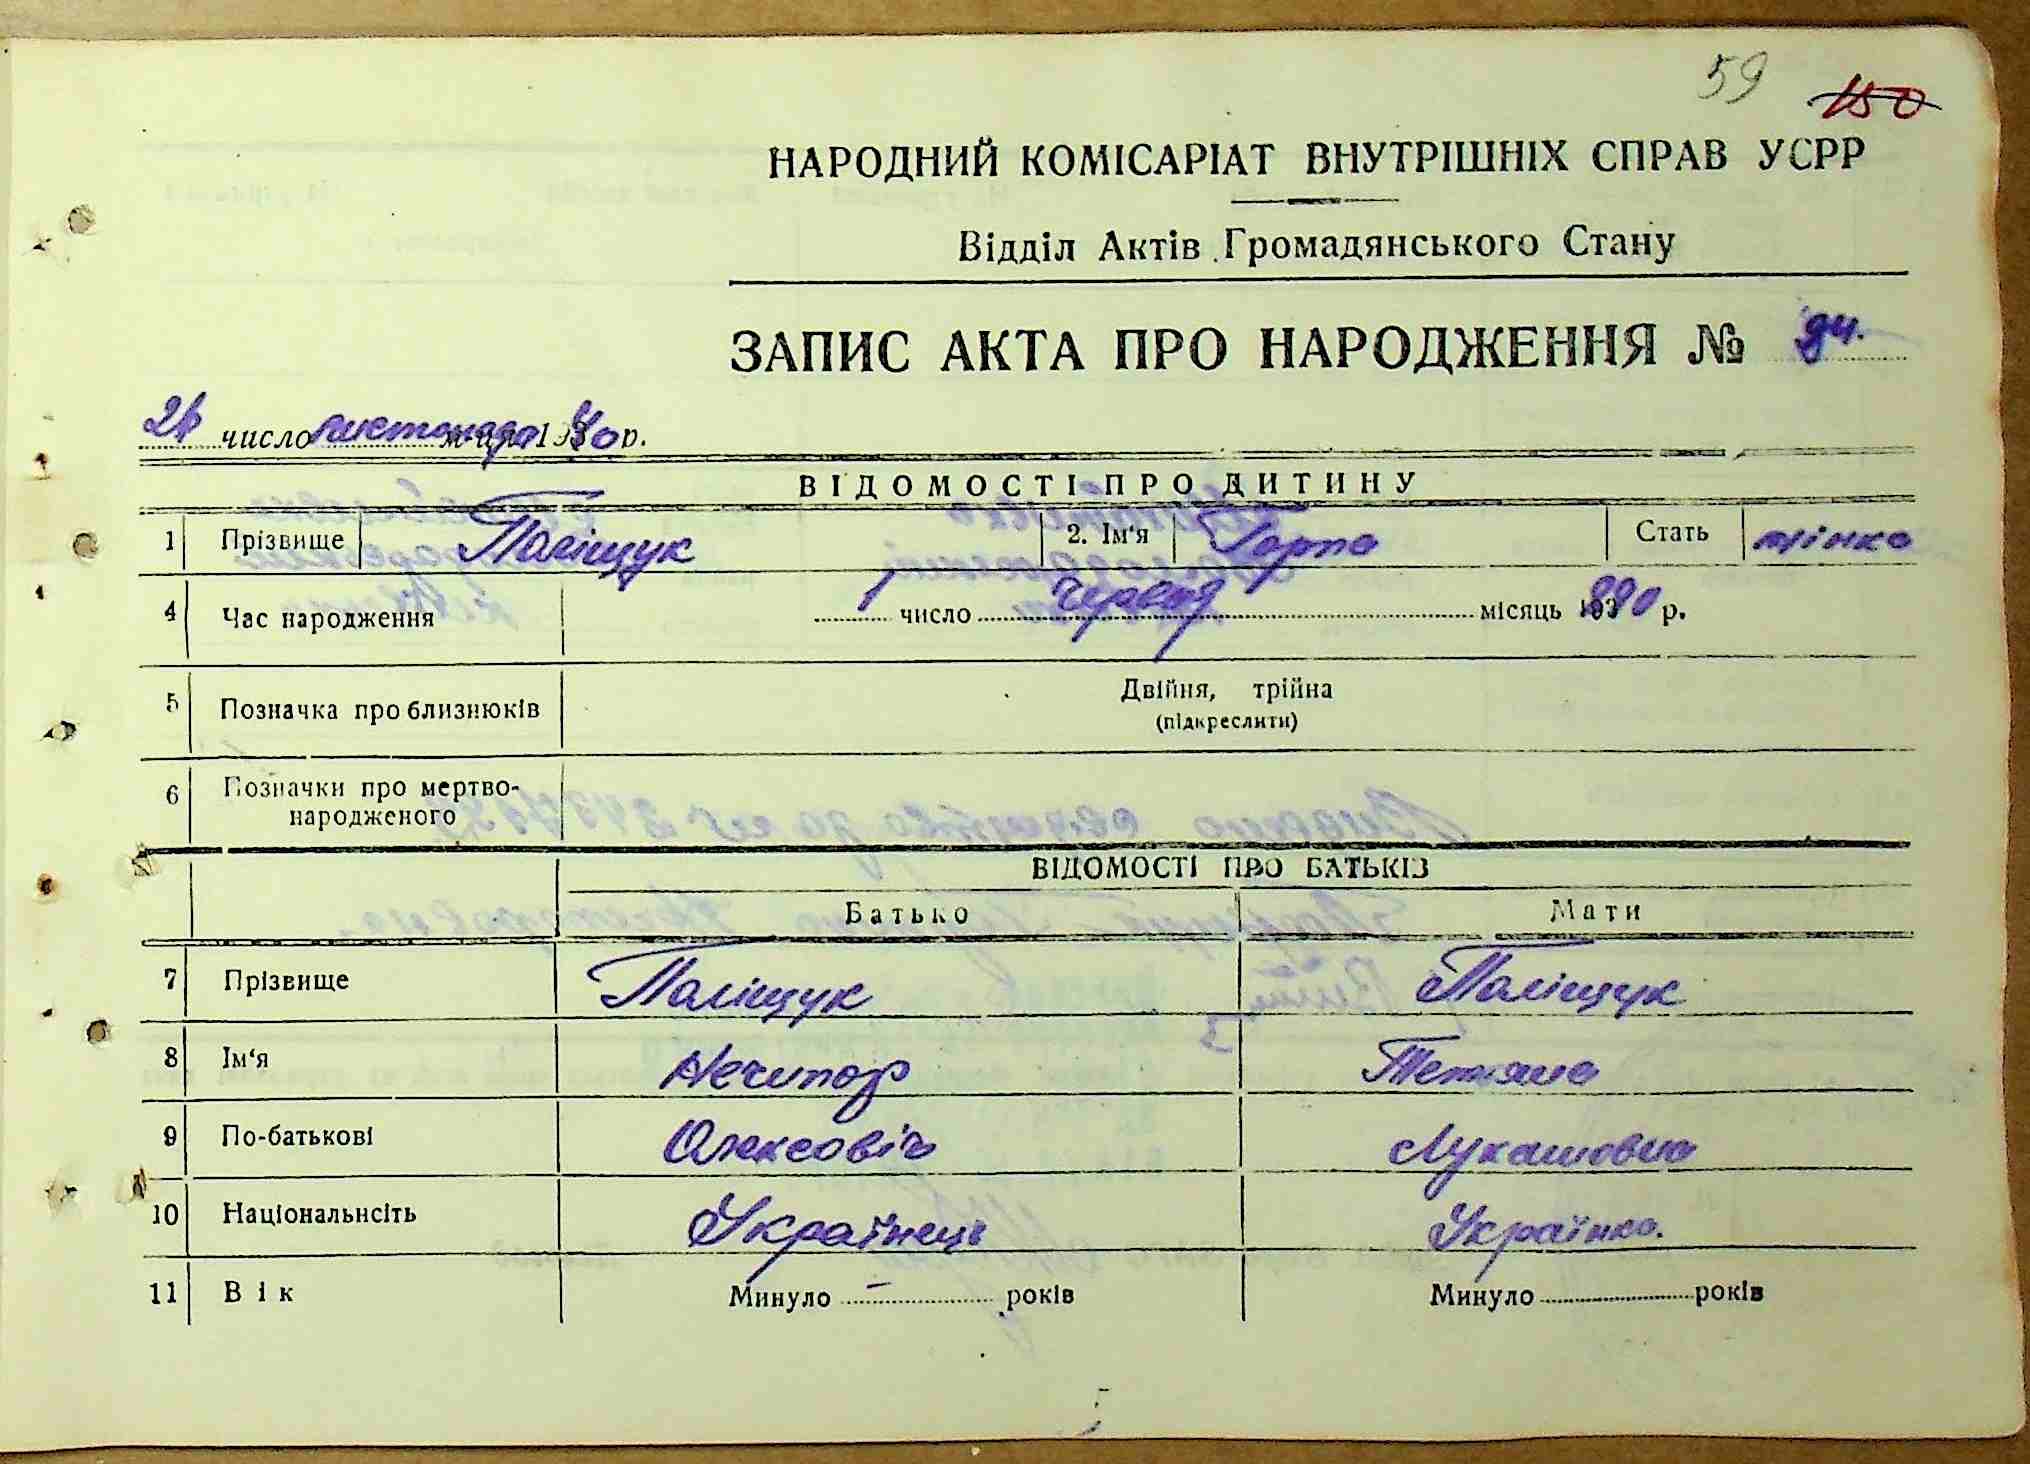 59 150
НАРОДНИЙ КОМІСАРІАТ ВНУТРІШНІХ СПРАВ УСРР
Відділ Актів Громадянського Стану
ЗАПИС АКТА ПРО НАРОДЖЕННЯ №
число листопада м-ця 1940 р.
ВІДОМОСТІ ПРО ДИТИНУ
1 Прізвище Поліщук 2. Ім'я Горпа Стать жінка
4 Час народження 1 число Червня місяць 193 р.
5 Позначка про близнюків Двійня, трійна
(підкреслити)
6 Позначки про мертво-
народженого
ВІДОМОСТІ ПРО БАТЬКІВ
Батько Мати
7 Прізвище Поліщук Поліщук
8 Ім'я Нечипор Тетяна
9 По-батькові Олексовіч Лукашовна
10 Національнсіть Українець Українка.
11 Вік Минуло — років Минуло років